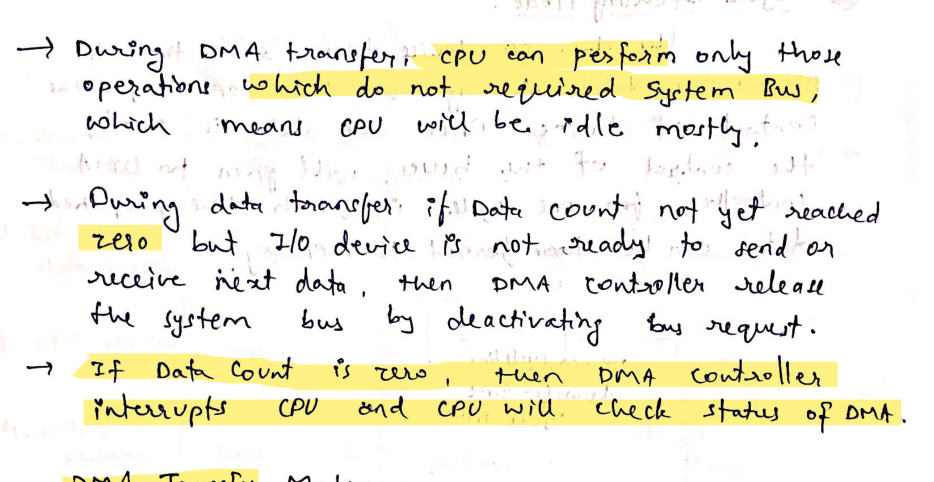 → During DMA transfer, CPU can perform only those
operations which do not required System Bus,
which means CPU will be idle mostly.
→ During data transfer if Data count not yet reached
zero but I/O device is not ready to send or
receive next data, then DMA controller release
the system bus by deactivating bus request.
→ If Data Count is zero, then DMA controller
interrupts CPU and CPU will check status of DMA.
DMA